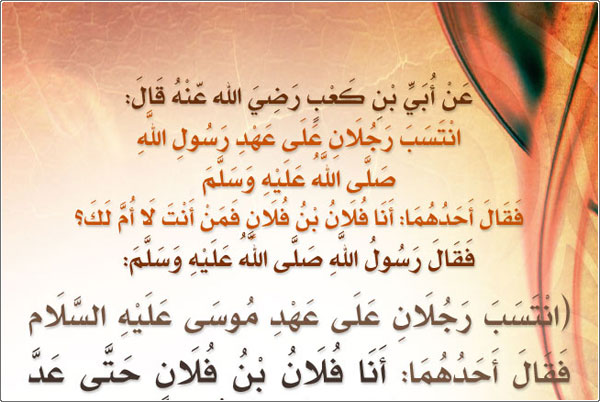 عَنْ أُبَيِّ بْنِ كَعْبٍ رَضِيَ الله عَنْهُ قَالَ:
انْتَسَبَ رَجُلَانِ عَلَى عَهْدِ رَسُولِ اللَّهِ
صَلَّى اللَّهُ عَلَيْهِ وَسَلَّمَ
فَقَالَ أَحَدُهُمَا: أَنَا فُلَانُ بْنُ فُلَانٍ فَمَنْ أَنْتَ لَا أُمَّ لَكَ؟
فَقَالَ رَسُولُ اللَّهِ صَلَّى اللَّهُ عَلَيْهِ وَسَلَّمَ:
(انْتَسَبَ رَجُلَانِ عَلَى عَهْدِ مُوسَى عَلَيْهِ السَّلَام
فَقَالَ أَحَدُهُمَا: أَنَا فُلَانُ بْنُ فُلَانٍ حَتَّى عَدَّ